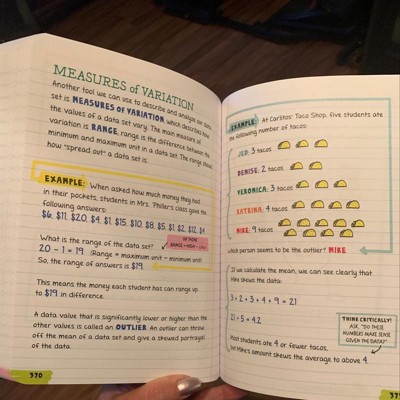 MEASURES of VARIATION
Another tool we can use to describe and analyze our data
set is MEASURES OF VARIATION, which describes how
the values of a data set vary. The main measure of
variation is RANGE. range is the difference between the
minimum and maximum unit in a data set. The range shows
how "spread out" a data set is.
EXAMPLE: When asked how much money they had
in their pockets, students in Mrs. Philler's class gave the
following answers:
$6, $11, $20, $4, $1, $15, $10, $8, $5, $1, $2, $12, $4
What is the range of the data set?
RANGE = HIGH - LOW
20 - 1 = 19 (Range = maximum unit - minimum unit)
So, the range of answers is $19.
This means the money each student has can range up
to $19 in difference.
A data value that is significantly lower or higher than the
other values is called an OUTLIER. An outlier can throw
off the mean of a data set and give a skewed portrayal
of the data.
370
EXAMPLE: At Carlitos' Taco Shop, five students ate
the following number of tacos:
JED: 3 tacos
DENISE: 2 tacos
VERONICA: 3 tacos
KATRINA: 4 tacos
MIKE: 9 tacos
Which person seems to be the outlier? MIKE
If we calculate the mean, we can see clearly that
Mike skews the data:
3 + 2 + 3 + 4 + 9 = 21
21 ÷ 5 = 4.2
Most students ate 4 or fewer tacos,
but Mike's amount skews the average to above 4.
THINK CRITICALLY!
ASK, "DO THESE
NUMBERS MAKE SENSE
GIVEN THE DATA?"